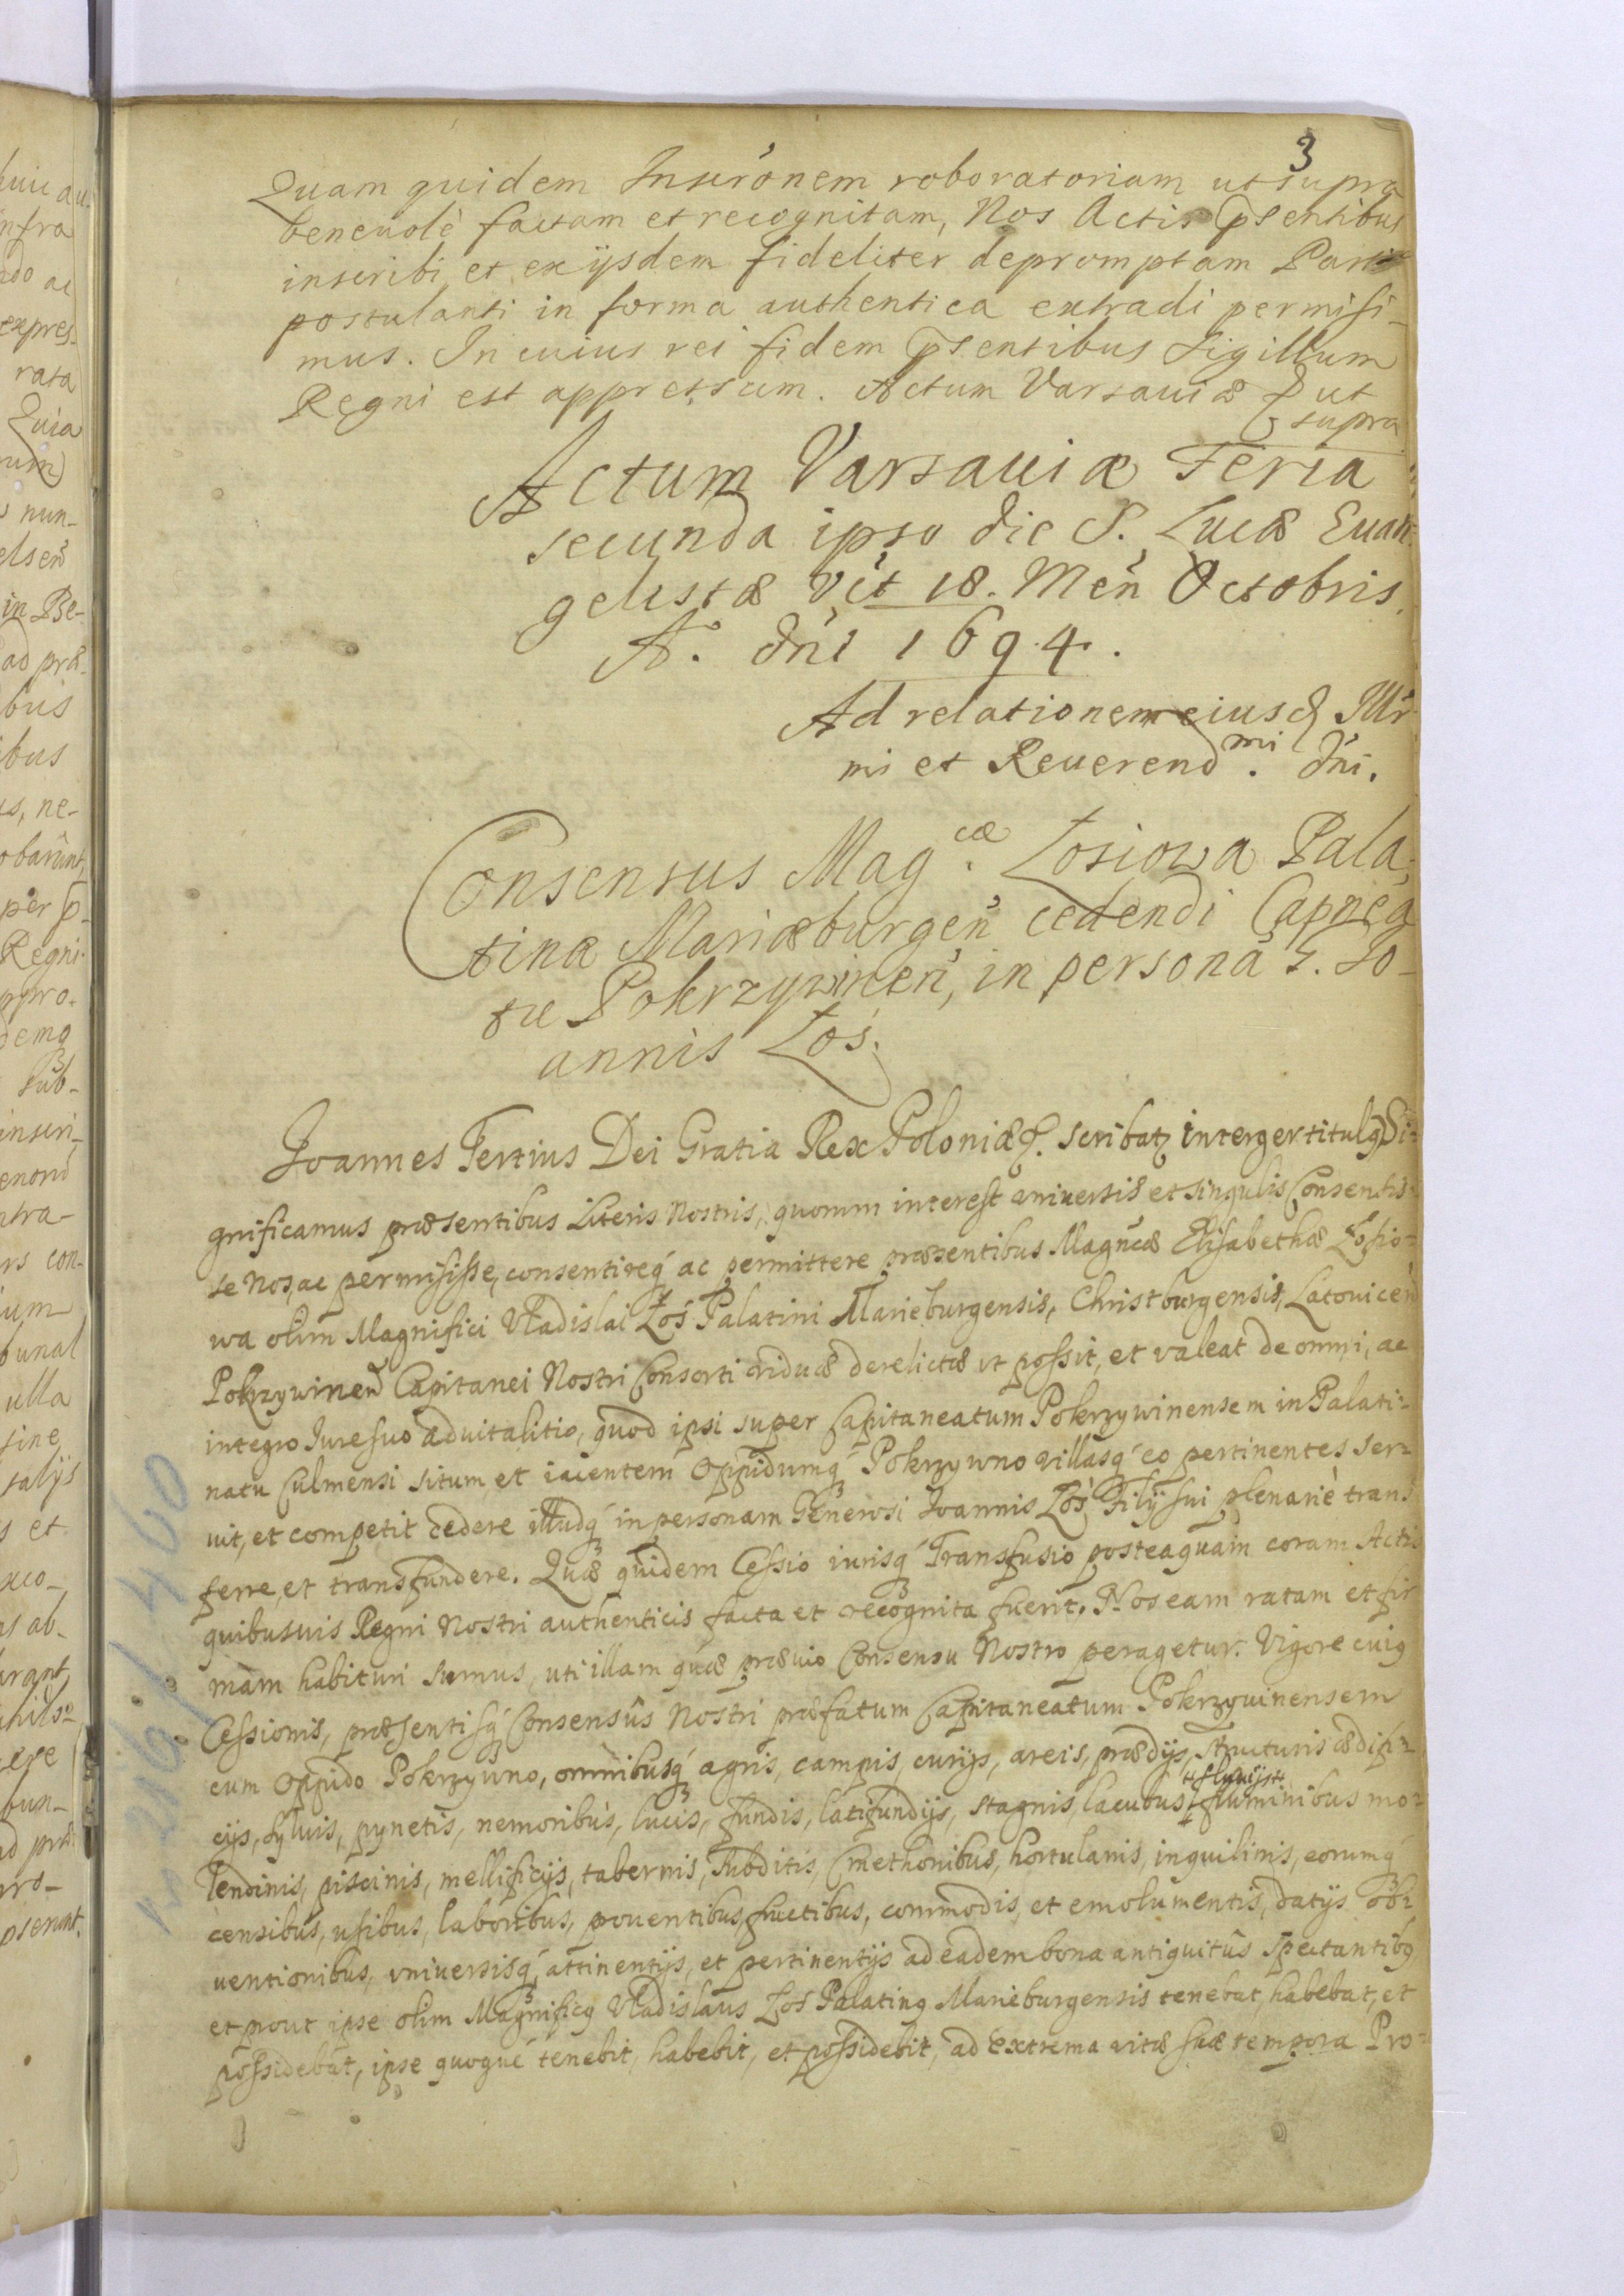 3
Quam quidem Inscrōnem roboratoriam ut supra
beneuolè factam et recognitam, Nos Actis p̄sentibus
inscribi et ex ijsdem fideliter depromptam Parti
postulanti in forma authentica extradi permisi-
mus. In cuius rei fidem p̄sentibus Sigillum
Regni est appressum. Actum Varsauiæ ut
supra
Actum Varsauiæ Feria
secunda ipso die S. Lucæ Euan-
gelistæ vt̄ 18. Men̄ Octobris.
A°. dn̄i 1694.
Ad relationem eiusd Illr̄-
mi et Reuerend.mi dn̄i.
Consensus Mag.cæ Łosiowa Pala-
tinæ Mariæburgen̄ cedendi Capnea-
tu Pokrzywinen̄, in persona G. Jo-
annis Łoś.
Joannes Tertius Dei Gratia Rex Poloniæ &. scribat integer titulq Si-
gnificamus præsentibus Literis Nostris, quorum interest vniuersis et singulis Consensis-
se Nos, ac permisisse, consentireq́ ac permittere præsentibus Magn̄cæ Elisabethæ Łosio-
wa olim Magnifici Vladislai Łoś Palatini Marieburgensis, Christburgensis, Latouicen̄
Pokrzywinen̄ Capitanei Nostri Consorti viduæ derelictæ vt possit, et valeat de omni, ac
integro Iure suo aduitalitio, quod ipsi super Capitaneatum Pokrzywinensem in Palati-
natu Culmensi situm et iacentem Oppidumq́ Pokrzywno villasq́ eo pertinentes ser-
uit, et competit cedere illudq́ in personam Generosi Joannis Łoś Filÿ sui plenariè trans-
ferre, et transfundere. Quæ quidem Cessio iurisq́ Transfusio posteaquam coram Actis
quibusuis Regni Nostri authenticis facta et recognita fuerit. Nos eam ratam et fir
mam habituri sumus, uti illam quæ præuio Consensu Nostro peragetur. Vigore cuiq
Cessionis, præsentisq́ Consensûs Nostri præfatum Capitaneatum Pokrzyuinensem
cum Oppido Pokrzywno, omnibusq́ agris, campis, curijs, areis, prædijs, structuris ædifi-
cijs, syluis, pynetis, nemoribus, lucis, fundis, latifundijs, stagnis, lacubus, fluuijs fluminibus mo-
lendinis, piscinis, mellificijs, tabernis, Subditis, Cmethonibus, hortulanis, inquilinis, eorumq́
censibus, usibus, laboribus, prouentibus, fructibus, commodis, et emolumentis, datijs ob-
uentionibus, vniuersisq́ attinentijs, et pertinentijs ad eadem bona antiquitûs spectantibq
et prout ipse olim Magnificq Vladislaus Łoś Palatinq Marieburgensis tenebat, habebat, et
possidebat, ipse quoque tenebit, habebit, et possidebit, ad extrema vitæ suæ tempora Pro-